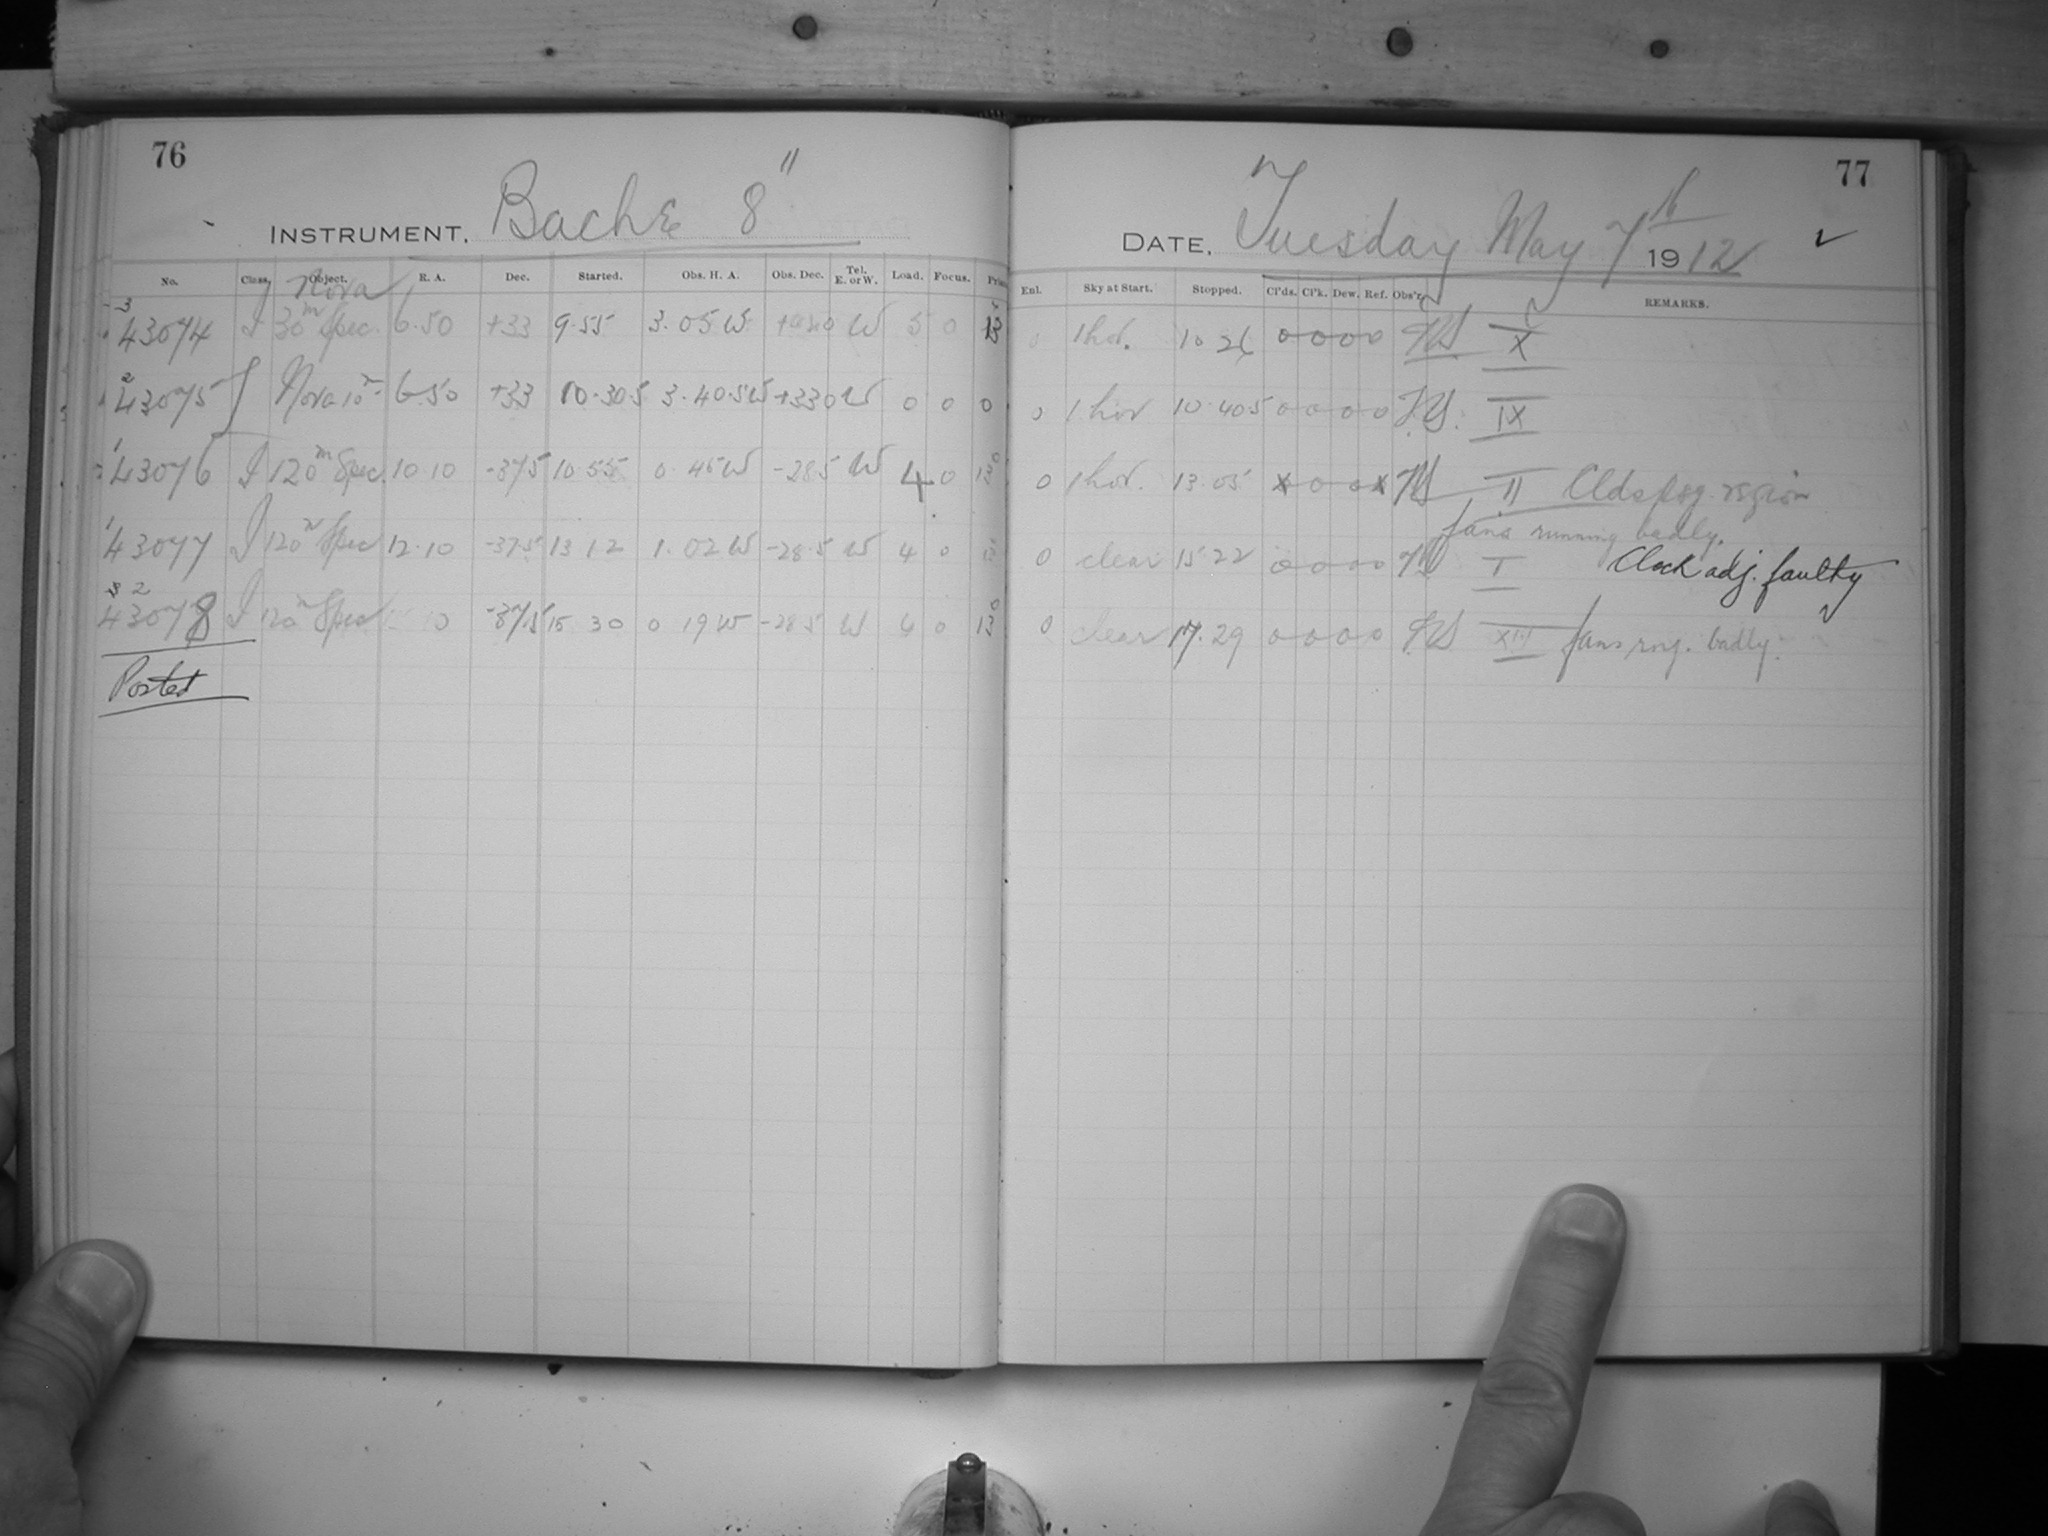 76
INSTRUMENT. Bache 8"
No. Class. Object. R. A. Dec. Started. Obs. H. A. Obs. Dec. Tel. E. or W. Load. Focus. Pris
Nova
3
43074 I 30m Spec. 6.50 +33 9.55 3.05 W W 5 0 13
2
43075 Nova 10m 6.50 +33 10.30 5 3.40.5 W +33 0 W 0 0 0
1
43076 I 120m Spec. 10.10 -37 5 10.55 0.45 W -28 5 W 4 0 13
1
43077 I 120m Spec 12.10 -37.5 13 12 1.02 W -28.5 W 4 0 13
2
43078 I 120m Spec 10 -37.5 15 30 0 19 W -28 5 W 4 0 13
Posted
77
DATE. Tuesday May 7th 1912
Enl. Sky at Start. Stopped. Cl'ds. Cl'k. Dew. Ref. Obs'r. REMARKS.
0 1 hor. 10 26 0 0 0 0 X
0 1 hor 10 40 5 0 0 0 0 IX
0 1 hor. 13.05 x 0 0 x II Clds psg. region
fans running badly.
0 clear 15 22 0 0 0 0 I Clock adj. faulty
0 clear 17.29 0 0 0 0 fans rng. badly.